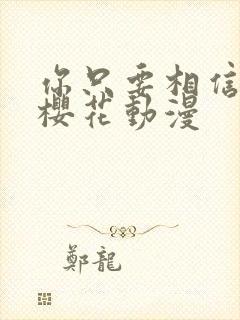 你只要相信
櫻花動漫
鄭龍